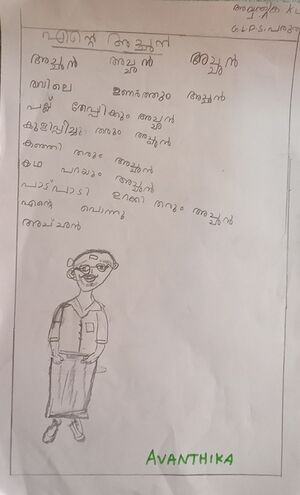 അവന്തിക K
G.L.P.S. പരുത്ത
എന്റെ അച്ഛൻ
അച്ഛൻ അച്ഛൻ അച്ഛൻ
രാവിലെ ഉണർത്തും അച്ഛൻ
പല്ല് തേപ്പിക്കും അച്ഛൻ
കുളിപ്പിച്ചു തരും അച്ഛൻ
കഞ്ഞി തരും അച്ഛൻ
കഥ പറയും അച്ഛൻ
പാട്പാടി ഉറക്കി തരും അച്ഛൻ
എന്റെ പൊന്നു
അച്ഛൻ
AVANTHIKA